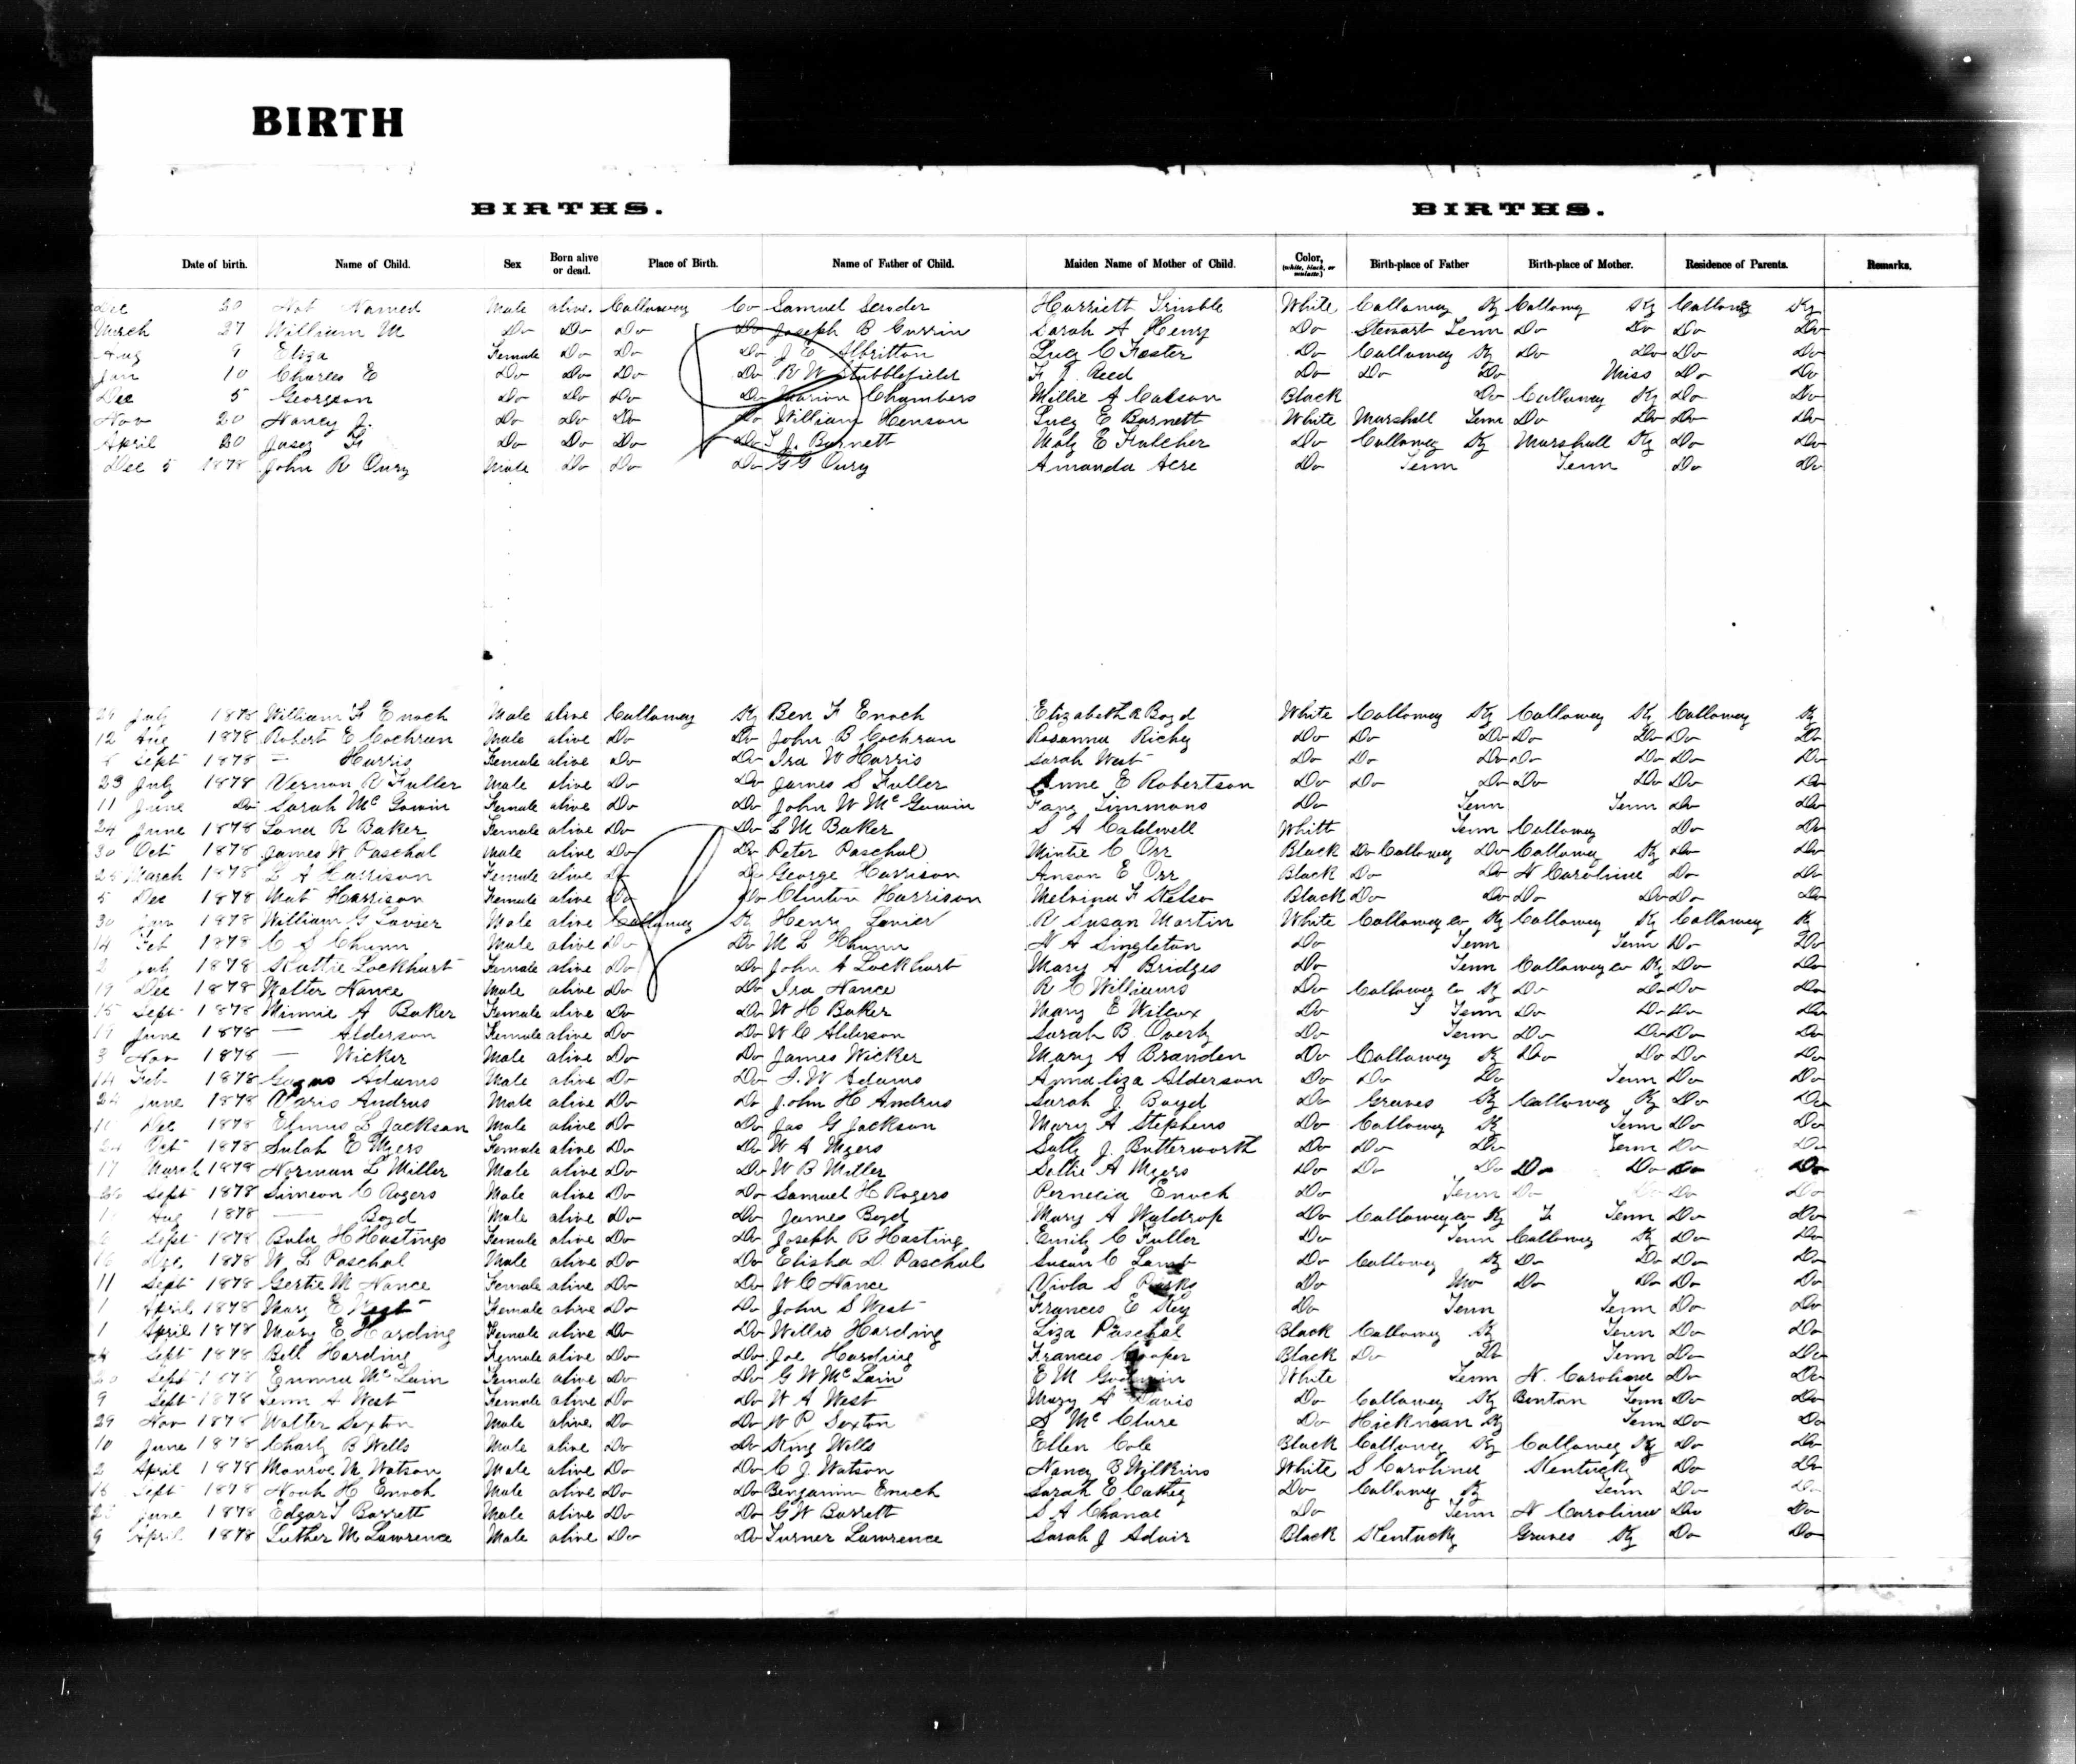 BIRTH
BIRTHS. BIRTHS.
Date of birth. Name of Child. Sex Born alive or dead. Place of Birth. Name of Father of Child. Maiden Name of Mother of Child. Color, (white, black, or mulatto.) Birth-place of Father Birth-place of Mother. Residence of Parents. Remarks.
Dec 20 Not Named Male alive. Calloway Co Samuel Harriett Trimble White Calloway Ky Calloway Ky Calloway Ky
March 27 William M Do Do Do Do Joseph B Sarah A Henry Do Stewart Tenn Do Do Do Do
Aug 9 Eliza Female Do Do Do J E Albritton Lucy C Foster Do Calloway Ky Do Do Do Do
Jan 10 Charles E Do Do Do Do R W Stubblefield F J Reed Do Do Do Miss Do Do
Dec 5 Georgeon Do Do Do Do Marion Chambers Millie A Black Do Calloway Ky Do Do
Nov 20 Nancy J. Do Do Do Do William Henson Lucy E Burnett White Marshall Tenn Do Do Do Do
April 20 F Do Do Do Do J. Burnett E Futcher Do Calloway Ky Marshall Ky Do Do
Dec 5 1878 John R Oury Male Do Do Do G G Oury Amanda Acre Do Tenn Tenn Do Do
July 1878 William F Enoch Male alive Calloway Ky Ben F Enoch Elizabeth R Boyd White Calloway Ky Calloway Ky Calloway Ky
12 Aug 1878 Robert E Cochran Male alive Do Do John B Cochran Rosanna Richy Do Do Do Do Do Do Do
Sept 1878 — Harris Female alive Do Do Ira W Harris Sarah West Do Do Do Do Do Do Do
23 July 1878 Vernon R Fuller Male alive Do Do James S Fuller Anne E Robertson Do Do Do Do Do Do Do
11 June Do Sarah McGowin Female alive Do Do John W McGowin Fany Simmons Do Tenn Tenn Do Do
24 June 1878 Lona R Baker Female alive Do Do L M Baker S A Caldwell Whitt Tenn Calloway Do Do
30 Oct 1878 James W Paschal Male alive Do Do Peter Paschal Mintie C Orr Black Do Calloway Do Calloway Ky Do Do
25 March 1878 L A Harrison Female alive Do Do George Harrison E Orr Black Do Do N Caroline Do Do
5 Dec 1878 Mat Harrison Female alive Do Do Clinton Harrison Melvina F Kelso Black Do Do Do Do Do Do
30 Jan 1878 William G Lavier Male alive Calloway Ky Henry Lavier R Susan Martin White Calloway Co Ky Calloway Ky Calloway K
14 Feb 1878 C S Chunn Male alive Do Do M L Chunn N A Singleton Do Tenn Tenn Do Do
2 July 1878 Lockhart Female alive Do Do John A Lockhart Mary A Bridges Do Tenn Calloway Co Ky Do Do
19 Dec 1878 Walter Nance Male alive Do Do Ira Nance R C Williams Do Calloway Co Ky Do Do Do Do
15 Sept 1878 Minnie A Baker Female alive Do Do W H Baker Mary E Wilcox Do Tenn Do Do Do Do
19 June 1878 — Alderson Female alive Do Do W C Alderson Sarah B Overby Do Tenn Do Do Do Do
3 Nov 1878 — Wicker Male alive Do Do James Wicker Mary A Branden Do Calloway Ky Do Do Do Do
14 Feb 1878 Adams Male alive Do Do J. W Adams Annaliza Alderson Do Do Do Tenn Do Do
24 June 1878 Paris Andrus Male alive Do Do John H Andrus Sarah J Boyd Do Graves Ky Calloway Ky Do Do
Dec 1878 Elmus L Jackson Male alive Do Do Jas G Jackson Mary A Stephens Do Calloway Ky Tenn Do Do
Oct 1878 Sulah E Myers Female alive Do Do W A Myers Sally J. Butterworth Do Do Do Tenn Do Do
17 March 1878 Norman L Miller Male alive Do Do W B Miller A Myers Do Do Do Do Do Do Do
Sept 1878 Simeon C Rogers Male alive Do Do Samuel H Rogers Pernecia Enoch Do Tenn Do Do Do
Aug 1878 — Boyd Male alive Do Do James Boyd Mary A Waldrop Do Calloway Co Ky Tenn Do Do
Sept 1878 Bula H Hastings Female alive Do Do Joseph R Hasting Emily C Fuller Do Tenn Calloway Ky Do Do
16 Dec 1878 W L Paschal Male alive Do Do Elisha D Paschal Susan C Lamb Do Calloway Ky Do Do Do Do
11 Sept 1878 Gertie M Nance Female alive Do Do W C Nance Viola S Do Mo Do Do Do Do
1 April 1878 Mary E West Female alive Do Do John S West Frances E Key Do Tenn Tenn Do Do
1 April 1878 Mary E Harding Female alive Do Do Willis Harding Liza Paschal Black Calloway Ky Tenn Do Do
4 Sept 1878 Bell Harding Female alive Do Do Joe Harding Frances Cooper Black Do Do Tenn Do Do
Sept 1878 Emma McLain Female alive Do Do G W McLain E M Goodwin White Tenn N. Carolina Do Do
9 Sept 1878 Tenn A West Female alive Do Do W A West Mary A Davis Do Calloway Ky Benton Tenn Do Do
29 Nov 1878 Walter Sexton Male alive Do Do W P Sexton S McClure Do Hickman Ky Tenn Do Do
10 June 1878 Charly B Wells Male alive Do Do King Wells Ellen Cole Black Calloway Ky Calloway Ky Do Do
2 April 1878 Monroe M Watson Male alive Do Do C J. Watson Nancy B Wilkins White S Carolina Kentucky Do Do
16 Sept 1878 Noah H Enoch Male alive Do Do Benjamin Enoch Sarah E Cathey Do Calloway Ky Tenn Do Do
June 1878 Edgar T Barrett Male alive Do Do G W Barrett S A Do Tenn N Carolina Do Do
9 April 1878 Luther M Lawrence Male alive Do Do Turner Lawrence Sarah J Adair Black Kentucky Graves Ky Do Do